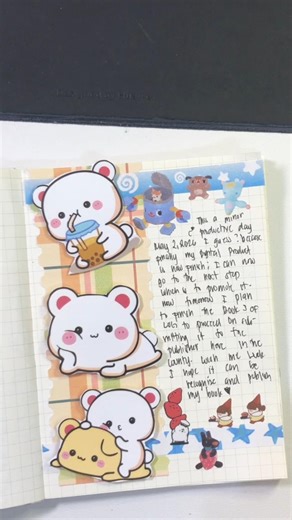 This a minor
productive day
May 2, 2024 I guess; because
finally my Digital Product
is now finish; I can now
go to the next step
which is to promote it.
now tomorrow I plan
to finish the book 3 of
to proceed on
it to the
publisher here in the
country. wish me luck
I hope it can be
recognise and publish
my book